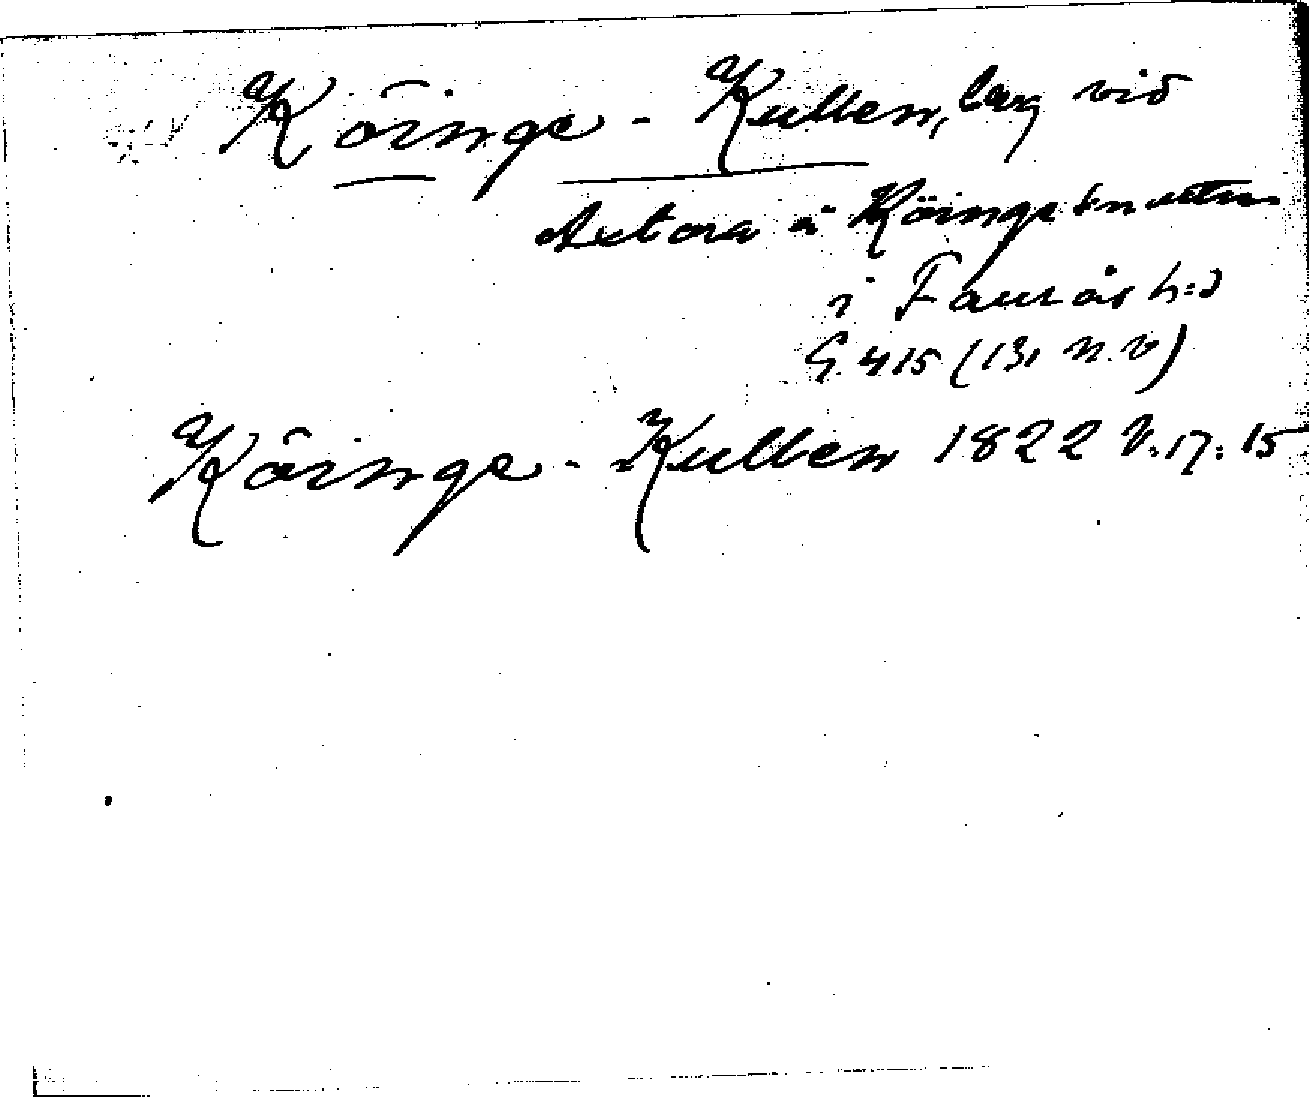 Köinge-Kullen, berg vid
Axtorna i Köinge sn
i Faurås h:d
G. 415 (13, N.V)
Köinge-Kullen 1822 V.17:15